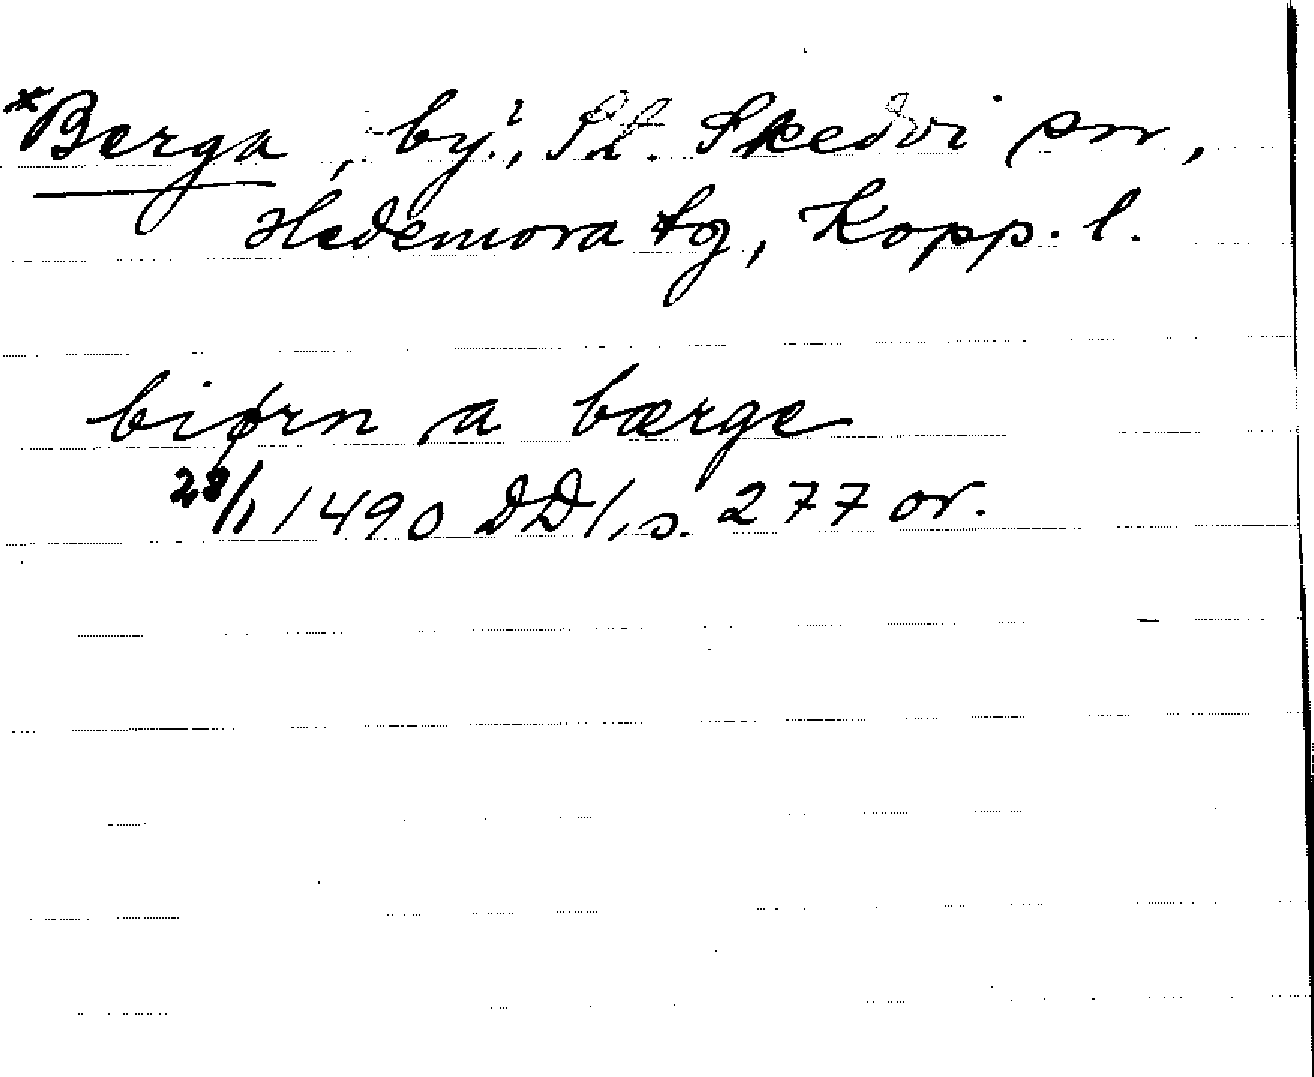 *Berga, by?, St. Skedvi sn,
Hedemora tg, Kopp. l.
biørn a bærge
28/1 1490 DD 1, s. 277 or.